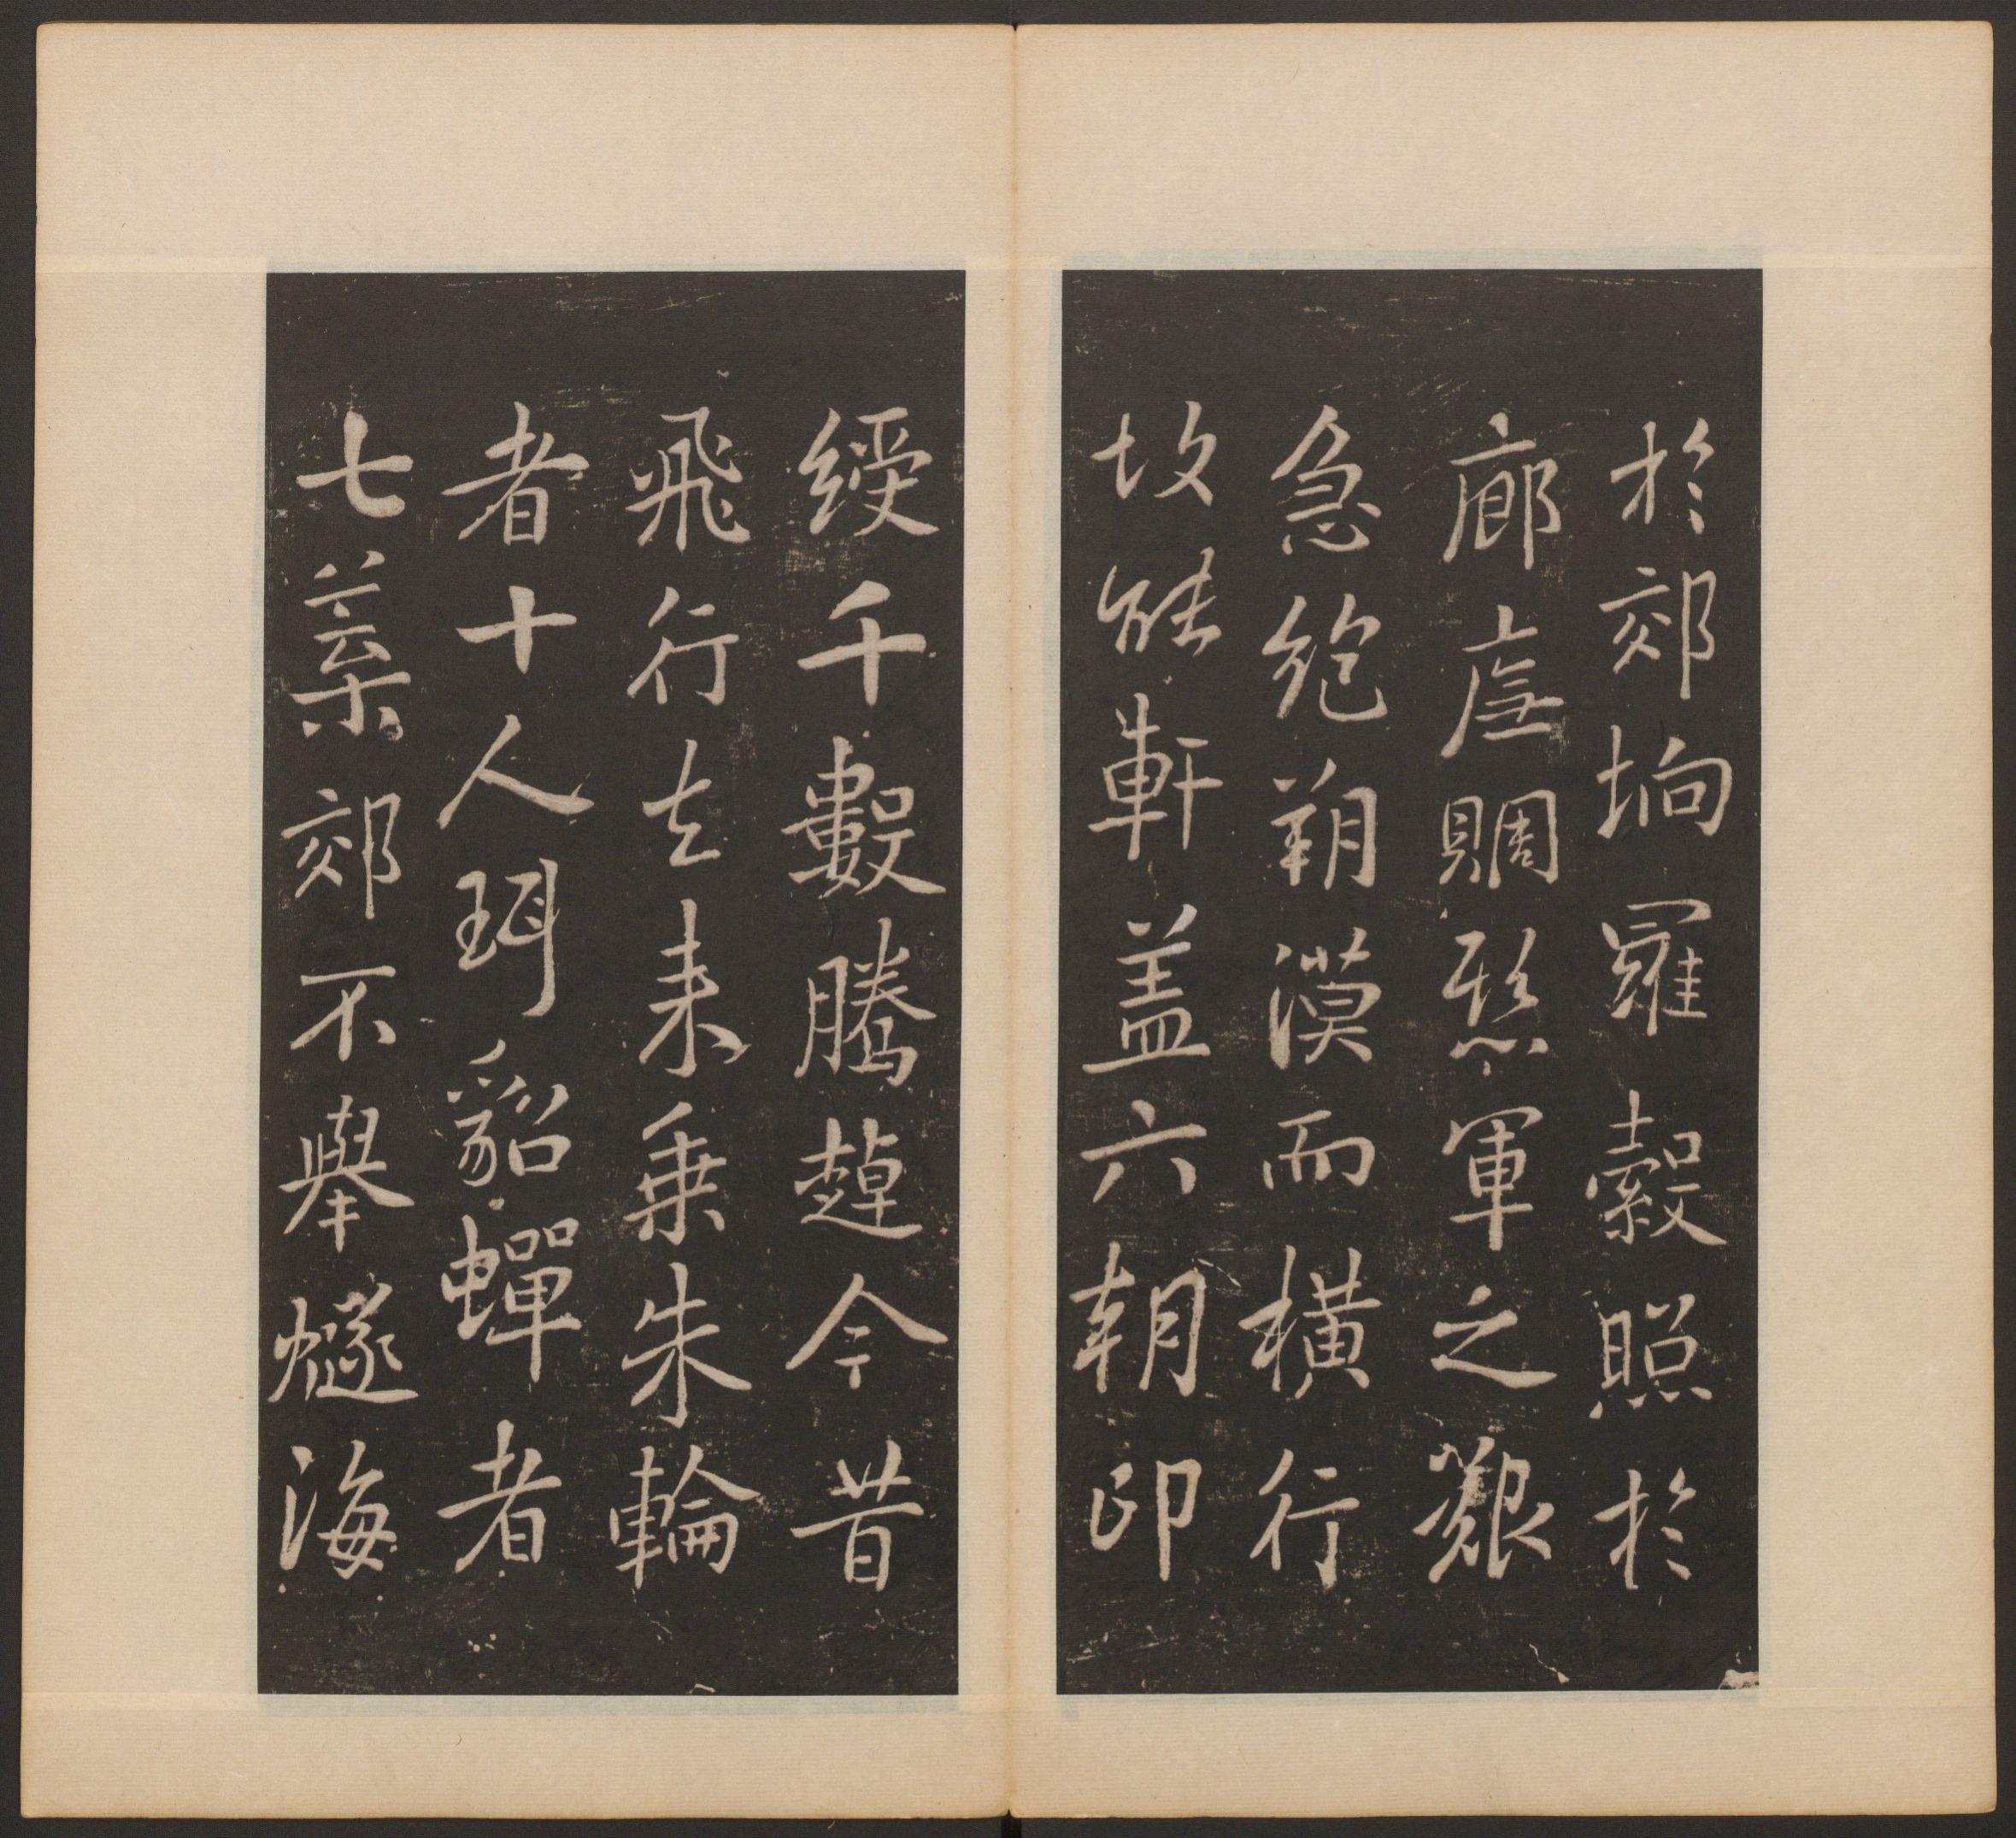 於郊坰羅縠照於
廊廡賙慇軍之艱
急絶朔漠而橫行
故能軒盖六朝印
綬千數騰趠今昔
飛行去来乗朱輪
者十人珥貂蟬者
七葉郊不舉燧海